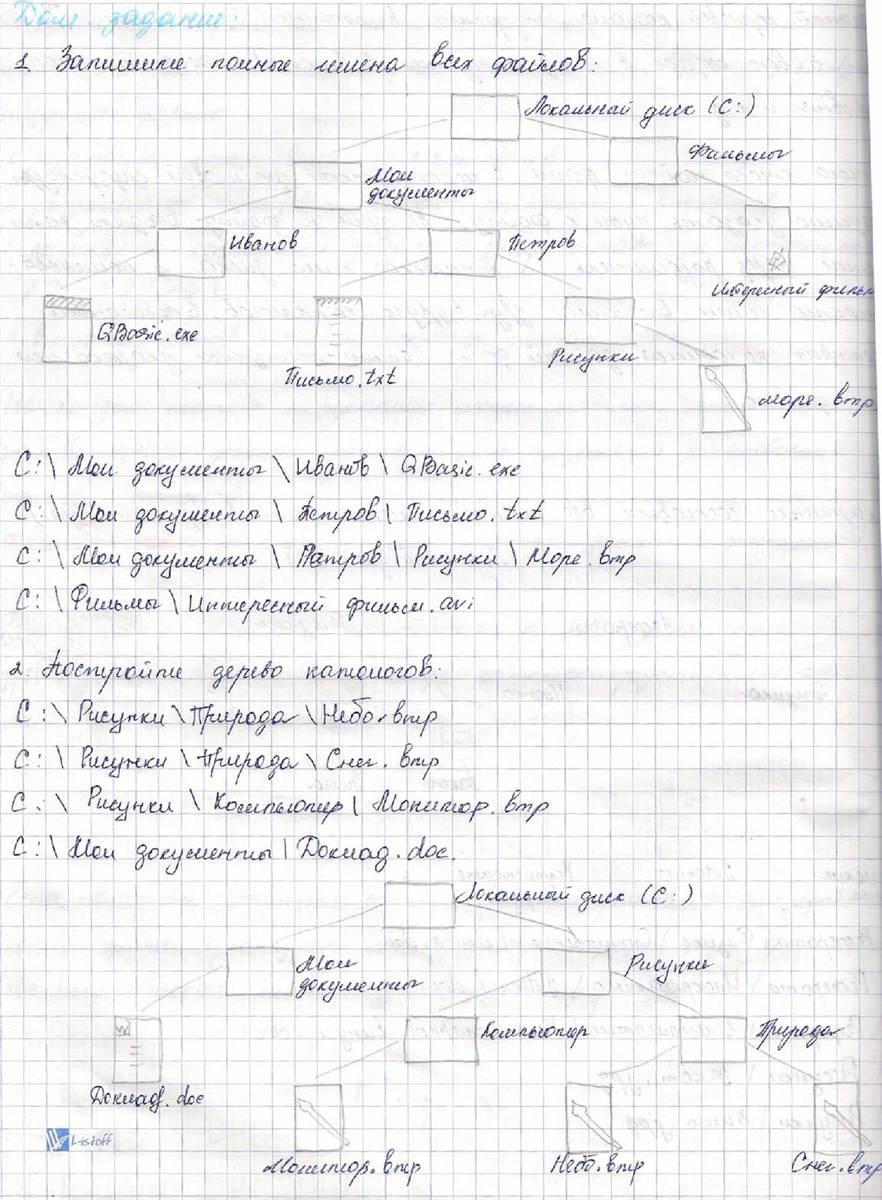 Дом. задание:
1. Запишите полные имена всех файлов:
Локальный диск (C:)
Фильмы
Мои
документы
Иванов
Петров
Интересный фильм
QBasic.exe
Письмо.txt
Рисунки
Море.bmp
C:\ Мои документы \ Иванов \ QBasic.exe
C:\ Мои документы \ Петров \ Письмо.txt
C:\ Мои документы \ Петров \ Рисунки \ Море.bmp
C:\ Фильмы \ Интересный фильм.avi
2. Постройте дерево каталогов:
C:\ Рисунки \ Природа \ Небо.bmp
C:\ Рисунки \ Природа \ Снег.bmp
C:\ Рисунки \ Компьютер \ Монитор.bmp
C:\ Мои документы \ Доклад.doc.
Локальный диск (C:)
Мои
документы
Рисунки
Компьютер
Природа
Доклад.doc
Монитор.bmp
Небо.bmp
Снег.bmp
Listoff